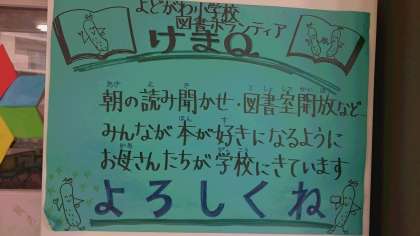 よどがわ小学校
図書ボランティア
けまQ.
朝の読み聞かせ・図書室開放など…
みんなが本が好きになるように
お母さんたちが学校にきています
よろしくね